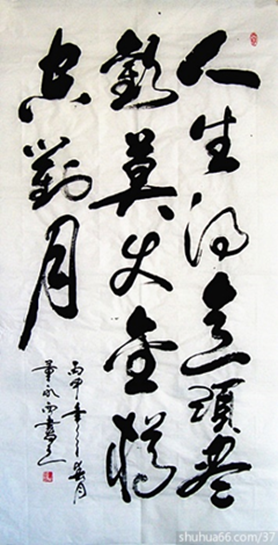 人生得意須盡
歡莫使金樽
空對月
丙申年
shuhua66.com/37